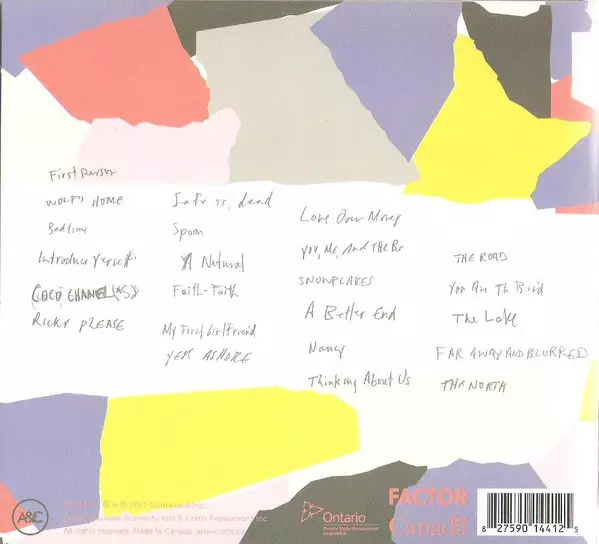 First Person
WOLF'S HOME
Bedtime
Introduce Yerself
COCO CHANEL(S)
RICKY PLEASE
Safe is, dead
Spoon
A Natural
FAITH-Faith
My First Girlfriend
YER ASHORE
Love Over Money
You, Me, And The Bs
SNOWFLAKES
A Better End
Nancy
Thinking About Us
THE ROAD
You Are Th Bird
The Lake
FAR AWAY AND BLURRED
THA NORTH
2017
Arts & Crafts Productions Inc.
All rights reserved. Made in Canada. arts-crafts.ca
A&C
Ontario
Ontario Media Development
Corporation
FACTOR
Canada
8 27590 14412 5